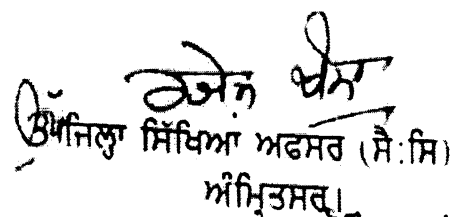 ਰਾਜੇਸ਼ ਖੰਨਾ
ਉੱਪ ਜਿਲ੍ਹਾ ਸਿੱਖਿਆ ਅਫਸਰ (ਸੈ:ਸਿ)
ਅੰਮ੍ਰਿਤਸਰ।